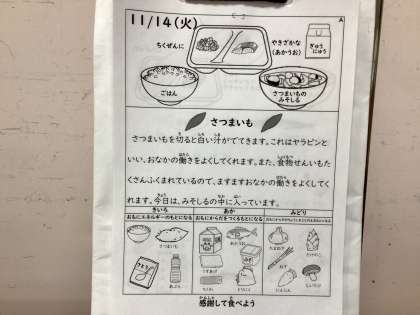 11/14(火)
A
ちくぜんに
やきざかな
(あかうお)
ぎゅう
にゅう
ごはん
さつまいもの
みそしる
さつまいも
さつまいもを切ると白い汁がでてきます。これはヤラピンと
いい、おなかの働きをよくしてくれます。また、食物せんいもた
くさんふくまれているので、ますますおなかの働きをよくしてく
れます。今日は、みそしるの中に入っています。
きいろ あか みどり
おもにエネルギーのもとになる おもにからだをつくるもとになる
ごはん さつまいも
さとう あぶら
あかうお
たまねぎ
にんじん
感謝して食べよう